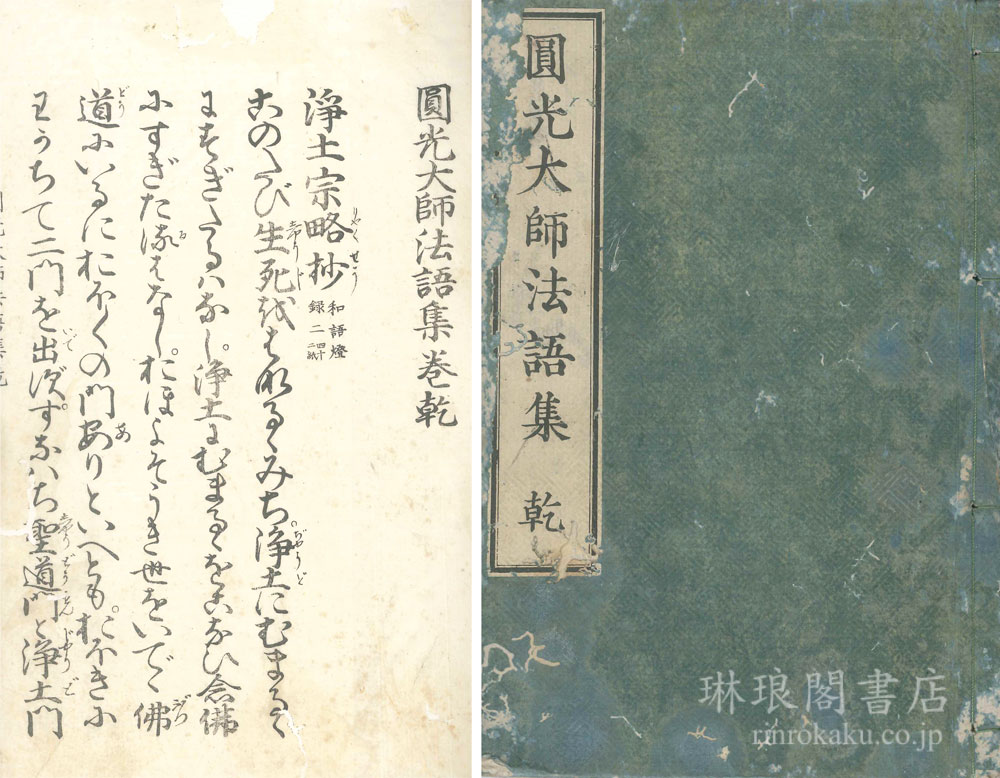 圓光大師法語集 乾
圓光大師法語集巻乾
淨土宗略抄 和語燈録二 四十二紙
このたび生死をはなるゝみち淨土にむまるゝ
にすぎたるハなし。淨土にむまるゝをこなひ念佛
にすぎたるはなし。おほよそうき世をいでゝ佛
道にいるにおほくの門ありといへとも。おほきに
わかちて二門を出ず。すなハち聖道門と淨土門
琳琅閣書店
rinrokaku.co.jp